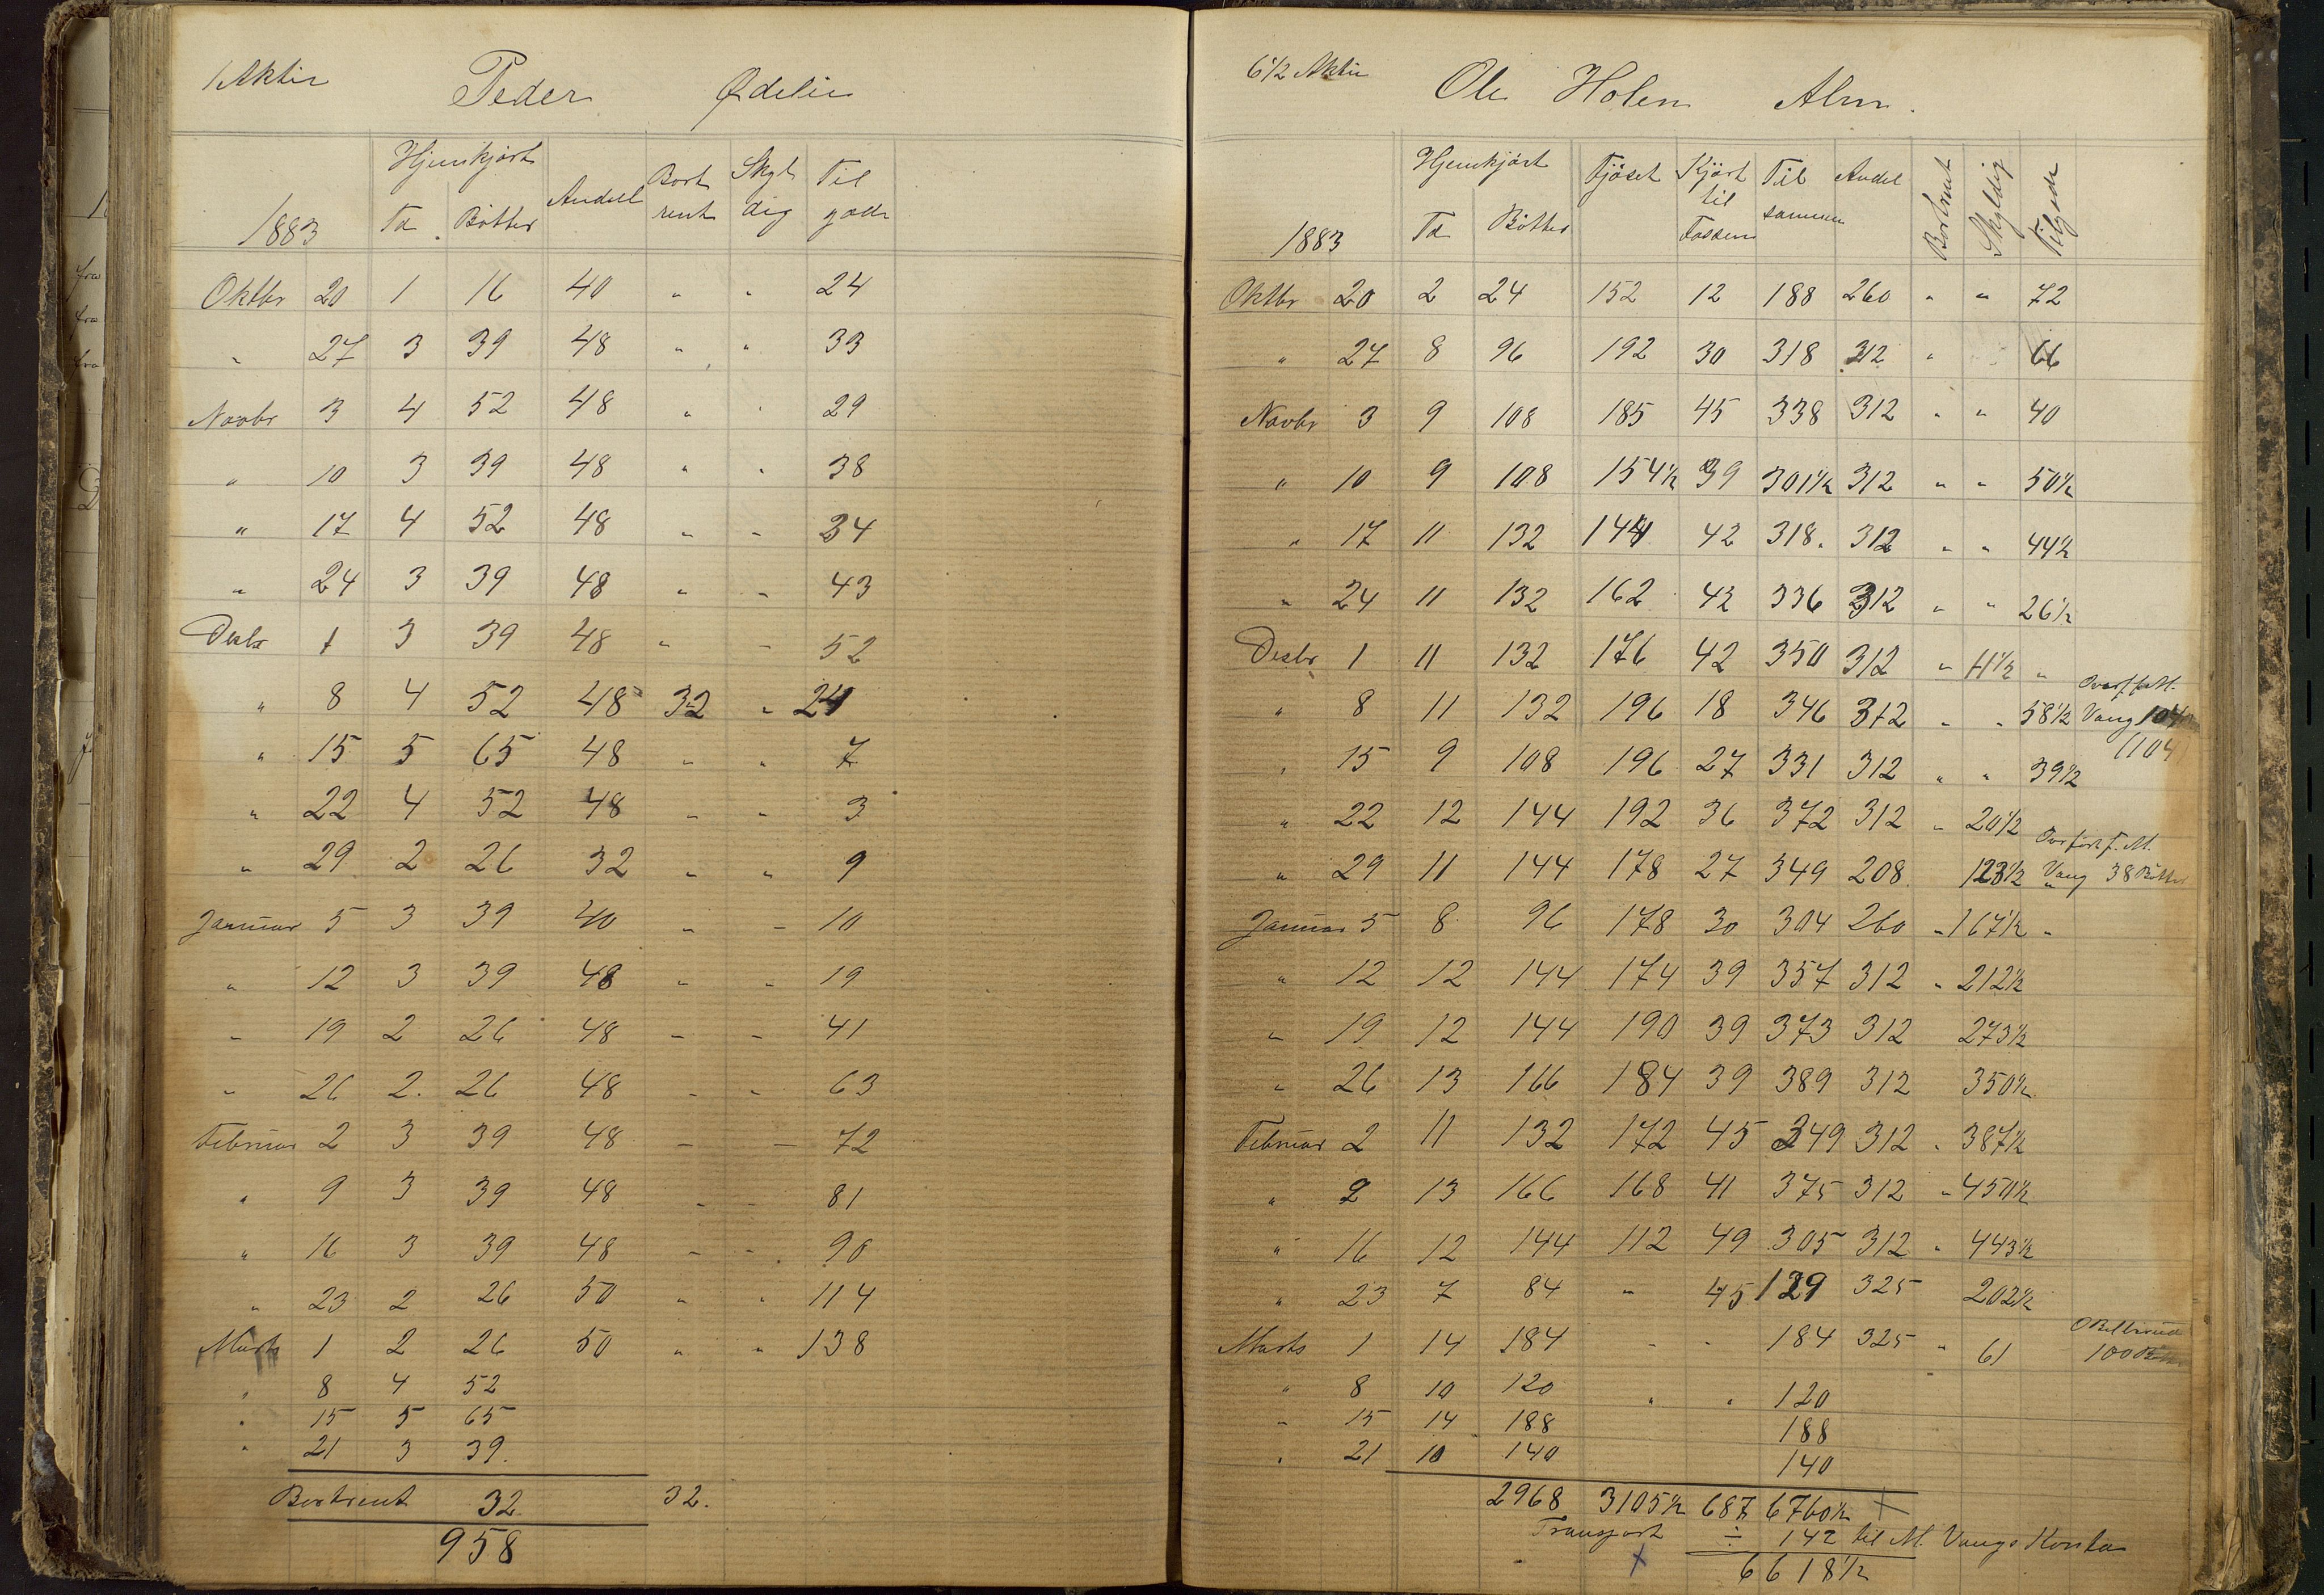 1 Aktie Peder Ødelien
Hjemkjørt Andel Bort rent Skyl dig Til gode
1883 Td Bøtter
Oktbr 20 1 16 40 " " 24
" 27 3 39 48 " " 33
Novbr 3 4 52 48 " " 29
" 10 3 39 48 " " 38
" 17 4 52 48 " " 34
" 24 3 39 48 " " 43
Desbr 1 3 39 48 " " 52
" 8 4 52 48 32 " 24
" 15 5 65 48 " " 7
" 22 4 52 48 " " 3
" 29 2 26 32 " " 9
Januar 5 3 39 40 " " 10
" 12 3 39 48 " " 19
" 19 2 26 48 " " 41
" 26 2 26 48 " " 63
Februar 2 3 39 48 " " 72
" 9 3 39 48 " " 81
" 16 3 39 48 " " 90
" 23 2 26 50 " " 114
Marts 1 2 26 50 " " 138
" 8 4 52
" 15 5 65
" 21 3 39
Bortrent 32 32.
958
6½ Aktie Ole Holen Alm.
Hjemkjørt Fjöset Kjørt til Fossen Til sammen Andel Bortrent Skyldig Tilgode
1883 Td Bøtter
Oktbr 20 2 24 152 12 188 260 " " 72
" 27 8 96 192 30 318 312 " 66
Novbr 3 9 108 185 45 338 312 " " 40
" 10 9 108 154½ 39 301½ 312 " " 50½
" 17 11 132 144 42 318. 312 " " 44½
" 24 11 132 162 42 336 312 " " 26½
Desbr 1 11 132 176 42 350 312 " 11½ "
" 8 11 132 196 18 346 312 " " 58½ Overf. fra M. Vang 104
(104)
" 15 9 108 196 27 331 312 " " 39½
" 22 12 144 192 36 372 312 " 20½
" 29 11 144 178 27 349 208 123½ " Overført f. M. Vang 38 Bøtter
Januar 5 8 96 178 30 304 260 " 167½ "
" 12 12 144 174 39 357 312 " 212½
" 19 12 144 190 39 373 312 273½
" 26 13 166 184 39 389 312 350½
Februar 2 11 132 172 45 349 312 " 387½
" 9 13 166 168 41 375 312 " 450½
" 16 12 144 112 49 305 312 " 443½
" 23 7 84 " 45 129 325 202½
Marts 1 14 184 " " 184 325 " 61 100
" 8 10 120 " " 120
" 15 14 188 188
" 21 10 140 140
2968 3105½ 687 6760½ +
Transport ÷ 142 til M. Vangs Konto
+ 6618½